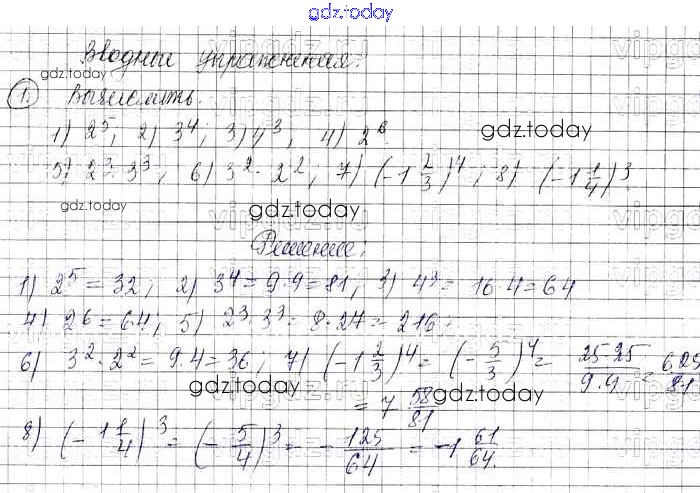 gdz.today
Вводные упражнения.
gdz.today
1. Вычислить.
1) 2⁵; 2) 3⁴; 3) 4³; 4) 2⁶.
gdz.today
5) 2³·3³; 6) 3²·2²; 7) (-1 2/3)⁴; 8) (-1 1/4)³.
gdz.today
gdz.today
Решение:
1) 2⁵ = 32; 2) 3⁴ = 9·9 = 81; 3) 4³ = 16·4 = 64
4) 2⁶ = 64; 5) 2³·3³ = 8·27 = 216.
6) 3²·2² = 9·4 = 36; 7) (-1 2/3)⁴ = (-5/3)⁴ = 25·25/9·9 = 625/81
gdz.today
gdz.today
= 7 58/81
8) (-1 1/4)³ = (-5/4)³ = -125/64 = -1 61/64.